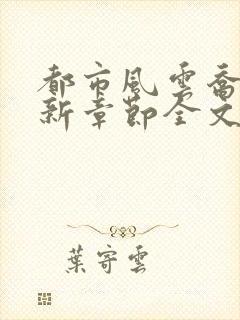 都市風雲喬
新章節全文
葉寄雲